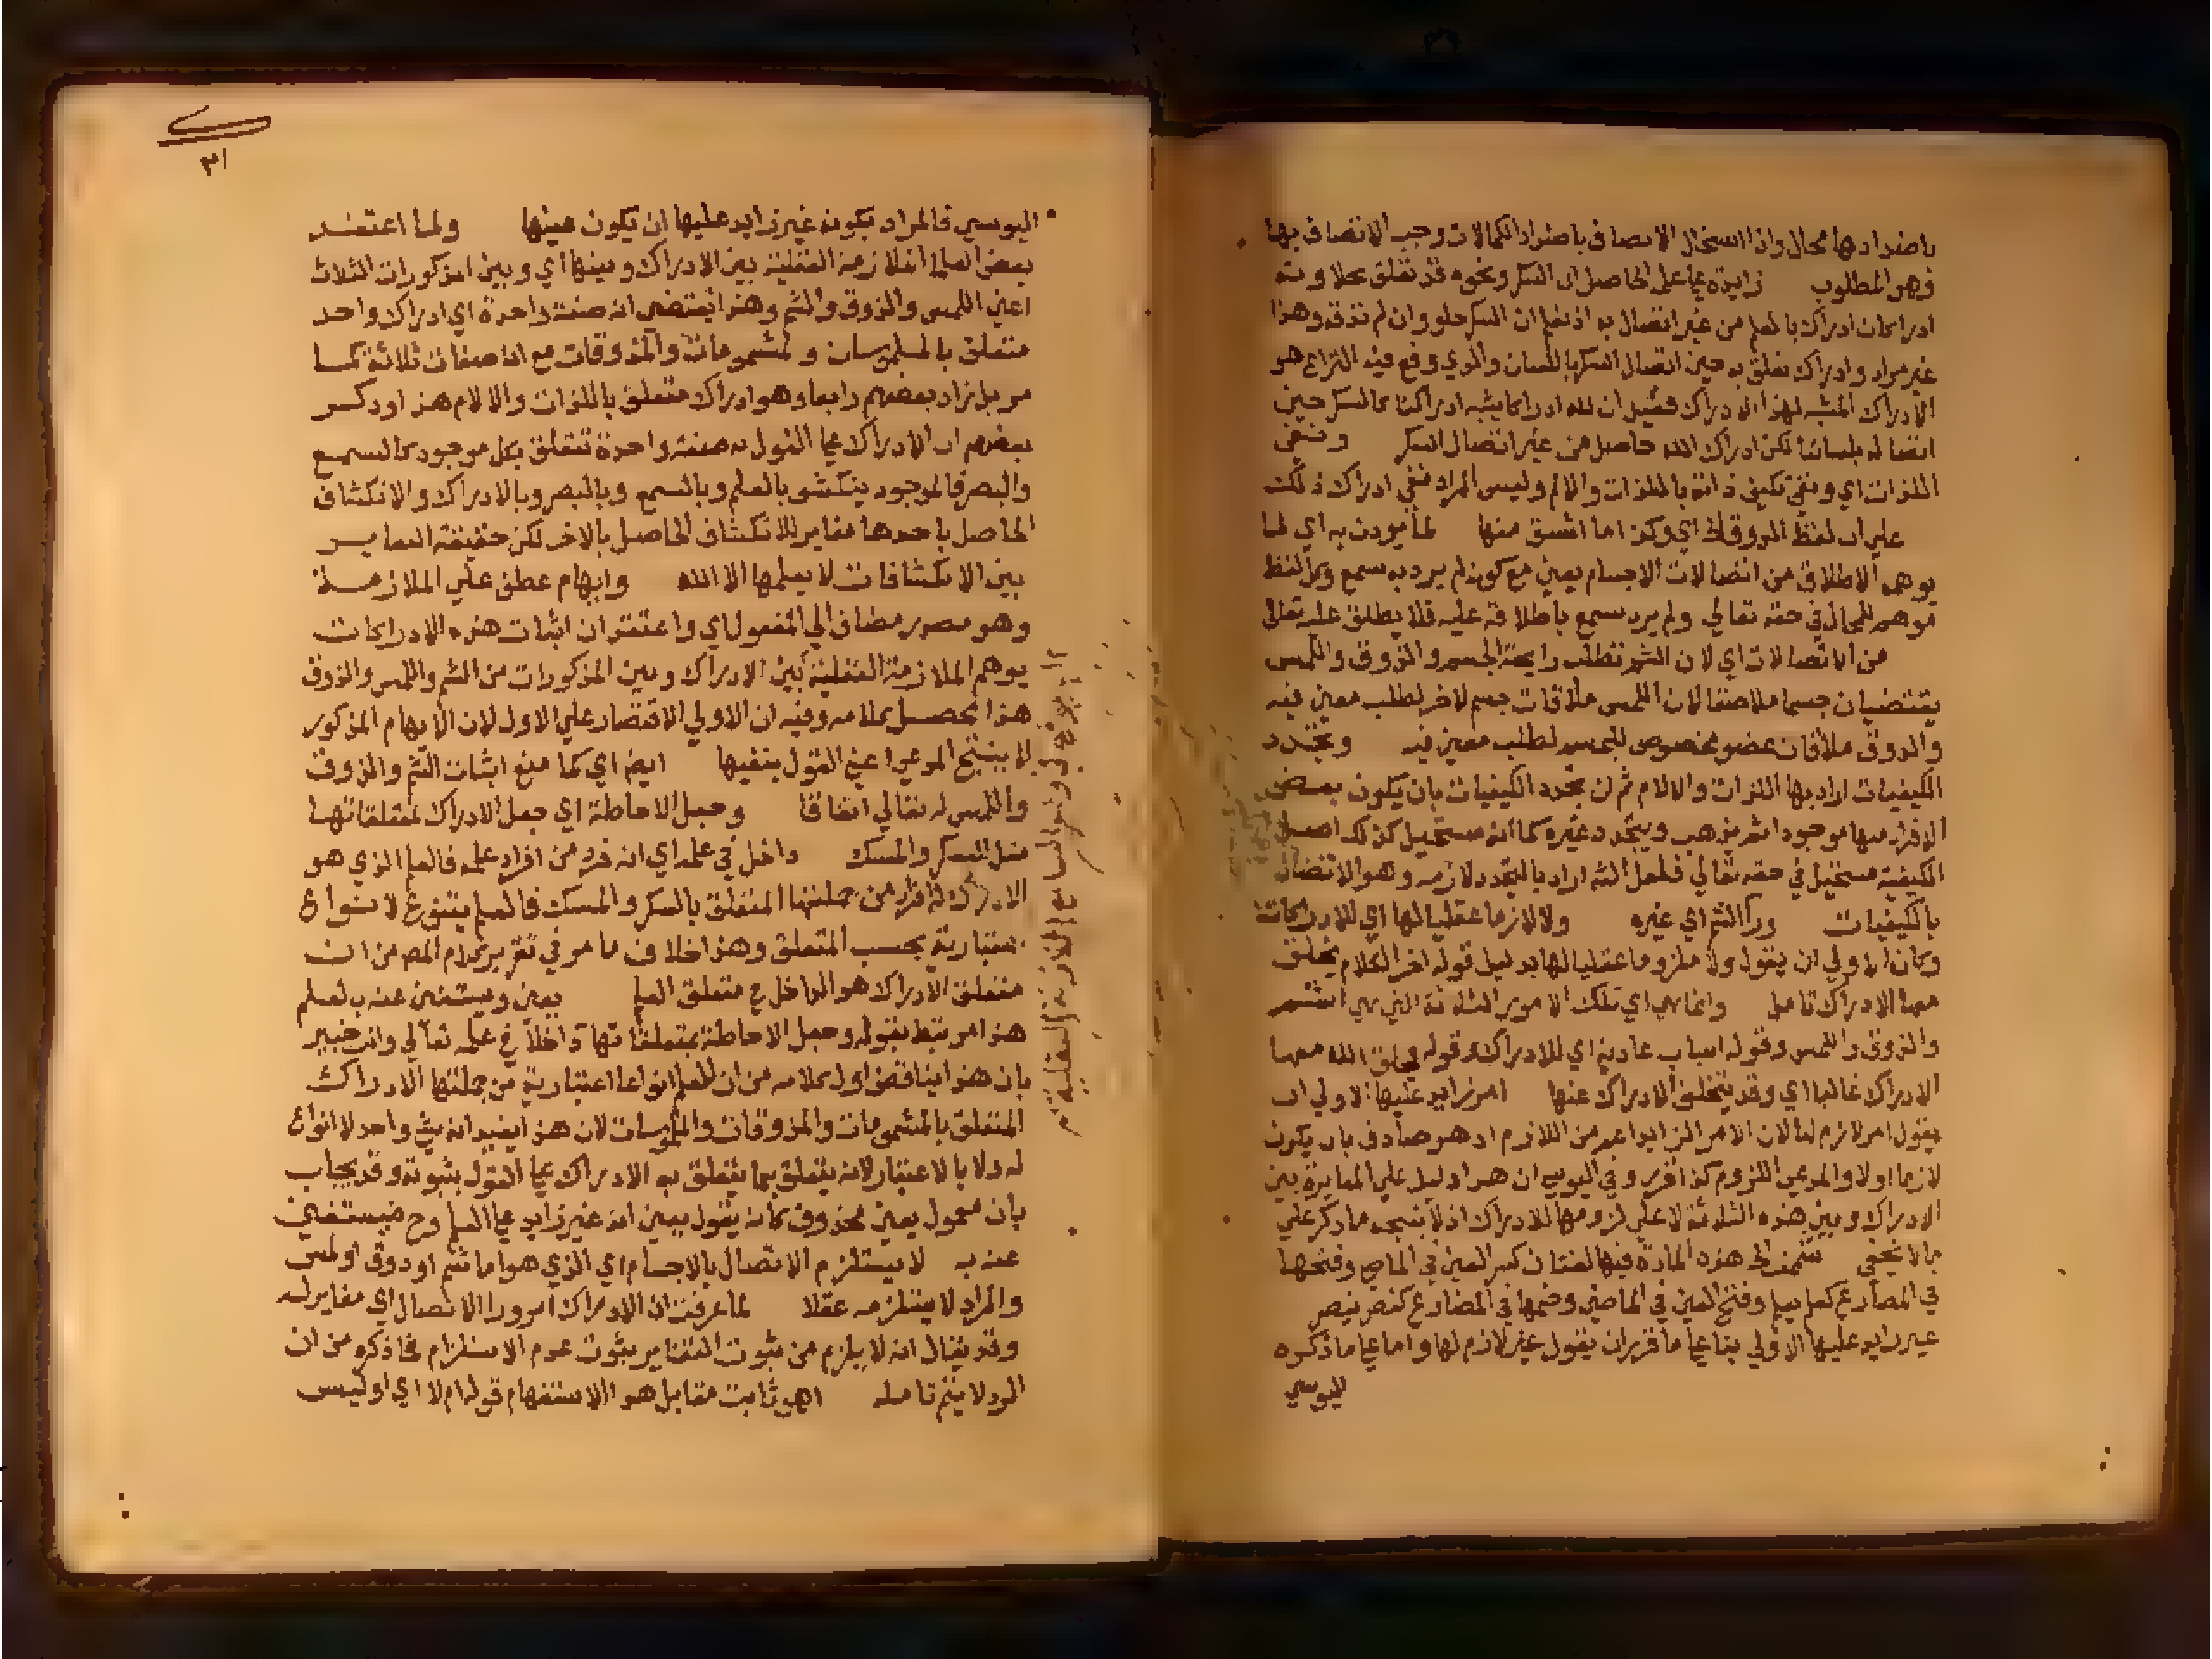 باضدادها محال واذا استحال الاتصاف باضداد الكمالات وجب الاتصاف بها
وهو المطلوب زايدة على علم الحاصل ان السكر ونحوه قد تعلق بحلاوته
ادراكان ادراك بالعلم من غير اتصال به اذ نعلم ان السكر حلو وان لم نذقه وهذا
غير مراد وادراك تعلق به حين اتصال السكر باللسان والذي وقع فيه النزاع هو
الادراك المشبه لهذا الادراك فقيل ان لله ادراكا يشبه ادراكنا كالسكر حين
اتصاله بلساننا لكن ادراك الله حاصل من غير اتصال السكر ونفي
اللذات اي ونفي تكيف ذاته باللذات والالم وليس المراد نفي ادراك ذلك
على ان لفظ الذوق اي وكذا ما اشتق منها لما يوذن به اي لما
يوهمه الاطلاق من اتصالات الاجسام يعني مع كونه لم يرد به سمع وكل لفظ
موهم للمحال في حقه تعالي ولم يرد سمع باطلاقه عليه فلا يطلق عليه تعالي
من الاتصالات اي لان الشم تطلب رايحة الجسم والذوق واللمس
يقتضيان جسما ملاصقا لان اللمس ملاقات جسم لاخر لطلب معين فيه
والذوق ملاقات عضو مخصوص للجسم لطلب معين فيه وتجدد
الكيفيات اراد بها اللذات والالام ثم ان تجدد الكيفيات بان يكون بعض
الافراد منها موجودا ثم يذهب ويتجدد غيره كما انه مستحيل كذلك اصل
الكيفية مستحيل في حقه تعالي فلعل الشه اراد بالتجدد لازمه وهو الاتصال
بالكيفيات ورا الشم اي غيره ولا لازما عقليا لها اي للادراكات
وكان الاولي ان يقول ولا ملزوما عقليا لها بدليل قوله اخر الكلام يخلق
معها الادراك تامل وانما هي اي تلك الامور الثلاثة التي هي الشم
والذوق واللمس وقوله اسباب عادية اي للادراك وقوله يخلق الله معها
الادراك غالبا اي وقد يتخلف الادراك عنها امر زايد عليها الاولي ان
يقول امر لازم لها لان الامر الزايد اعم من اللازم اذ هو صادق بان يكون
لازما اولا والمدعي اللزوم كذا قرر وفي اليوسي ان هذا دليل علي المغايرة بين
الادراك وبين هذه الثلاثة لا علي لزومها للادراك اذ لا ينتجه ما ذكر علي
ما لا يخفي الخ هذه المادة فيها لغتان كسر العين في الماضي وفتحها
في المضارع كعلم يعلم وفتح العين في الماضي وضمها في المضارع كنصر ينصر
غير زايد عليها الاولي بنا علي ما قرر ان يقول غير لازم لها واما علي ما ذكره
اليوسي
٣١
اليوسي فالمراد بكونه غير زايد عليها ان يكون عينها ولما اعتقد
بعض العلما التلازمة العقلية بين الادراك وبينها اي وبين المذكورات الثلاث
اعني اللمس والذوق والشم وهذا يقتضي انه صفة واحدة اي ادراك واحد
متعلق بالملموسات والمشمومات والمذوقات مع انها صفات ثلاثة كما
مر بل زاد بعضهم رابعا وهو ادراك متعلق باللذات والالام هذا وذكر
بعضهم ان الادراك علي القول به صفة واحدة تتعلق بكل موجود كالسمع
والبصر فالموجود ينكشف بالعلم وبالسمع وبالبصر وبالادراك والانكشاف
الحاصل باحدها مغاير للانكشاف الحاصل بالاخر لكن حقيقة التغاير
بين الانكشافات لا يعلمها الا الله وايهام عطف علي الملازمة
وهو مصدر مضاف الي المفعول اي واعتقد ان اثبات هذه الادراكات
يوهم الملازمة العقلية بين الادراك وبين المذكورات من الشم واللمس والذوق
هذا محصل كلامه وفيه ان الاولي الاقتصار علي الاول لان الايهام المذكور
لا ينتج المدعي اعني القول بنفيها ايضا اي كما منع اثبات الشم والذوق
واللمس له تعالي اتفاقا وجعل الاحاطة اي جعل الادراك لمتعلقاتها
مثل السكر والمسك داخل في علمه اي انه فرد من افراد علمه فالعلم الذي هو
الادراك له افراد من جملتها المتعلق بالسكر والمسك فالعلم يتنوع لانواع
اعتبارية بحسب المتعلق وهذا خلاف ما مر في تقرير كلام المص من ان
متعلق الادراك هو الداخل في متعلق العلم يعني ويستغني عنه بالعلم
هذا مرتبط بقوله وجعل الاحاطة بمتعلقاتها داخلا في علمه تعالي وانت خبير
بان هذا يناقض اول كلامه من ان للعلم انواعا اعتبارية من جملتها الادراك
المتعلق بالمشمومات والمذوقات والملموسات لان هذا يفيد انه شي واحد لا انواع
له ولا بالاعتبار لانه يتعلق بما يتعلق به الادراك علي القول بثبوته وقد يجاب
بان معمول يعني محذوف كانه يقول يعني انه غير زايد علي العلم وح فيستغني
عنه به لا يستلزم الاتصال بالاجسام اي الذي هو اما شم او ذوق او لمس
والمراد لا يستلزمه عقلا لما عرفت ان الادراك امر ورا الاتصال اي مغاير له
وقد يقال انه لا يلزم من ثبوت التغاير ثبوت عدم الاستلزام فما ذكره من ان
الرد لا يتم تامله اهو ثابت مقابل هو الاستفهام قوله ام لا اي اوليس